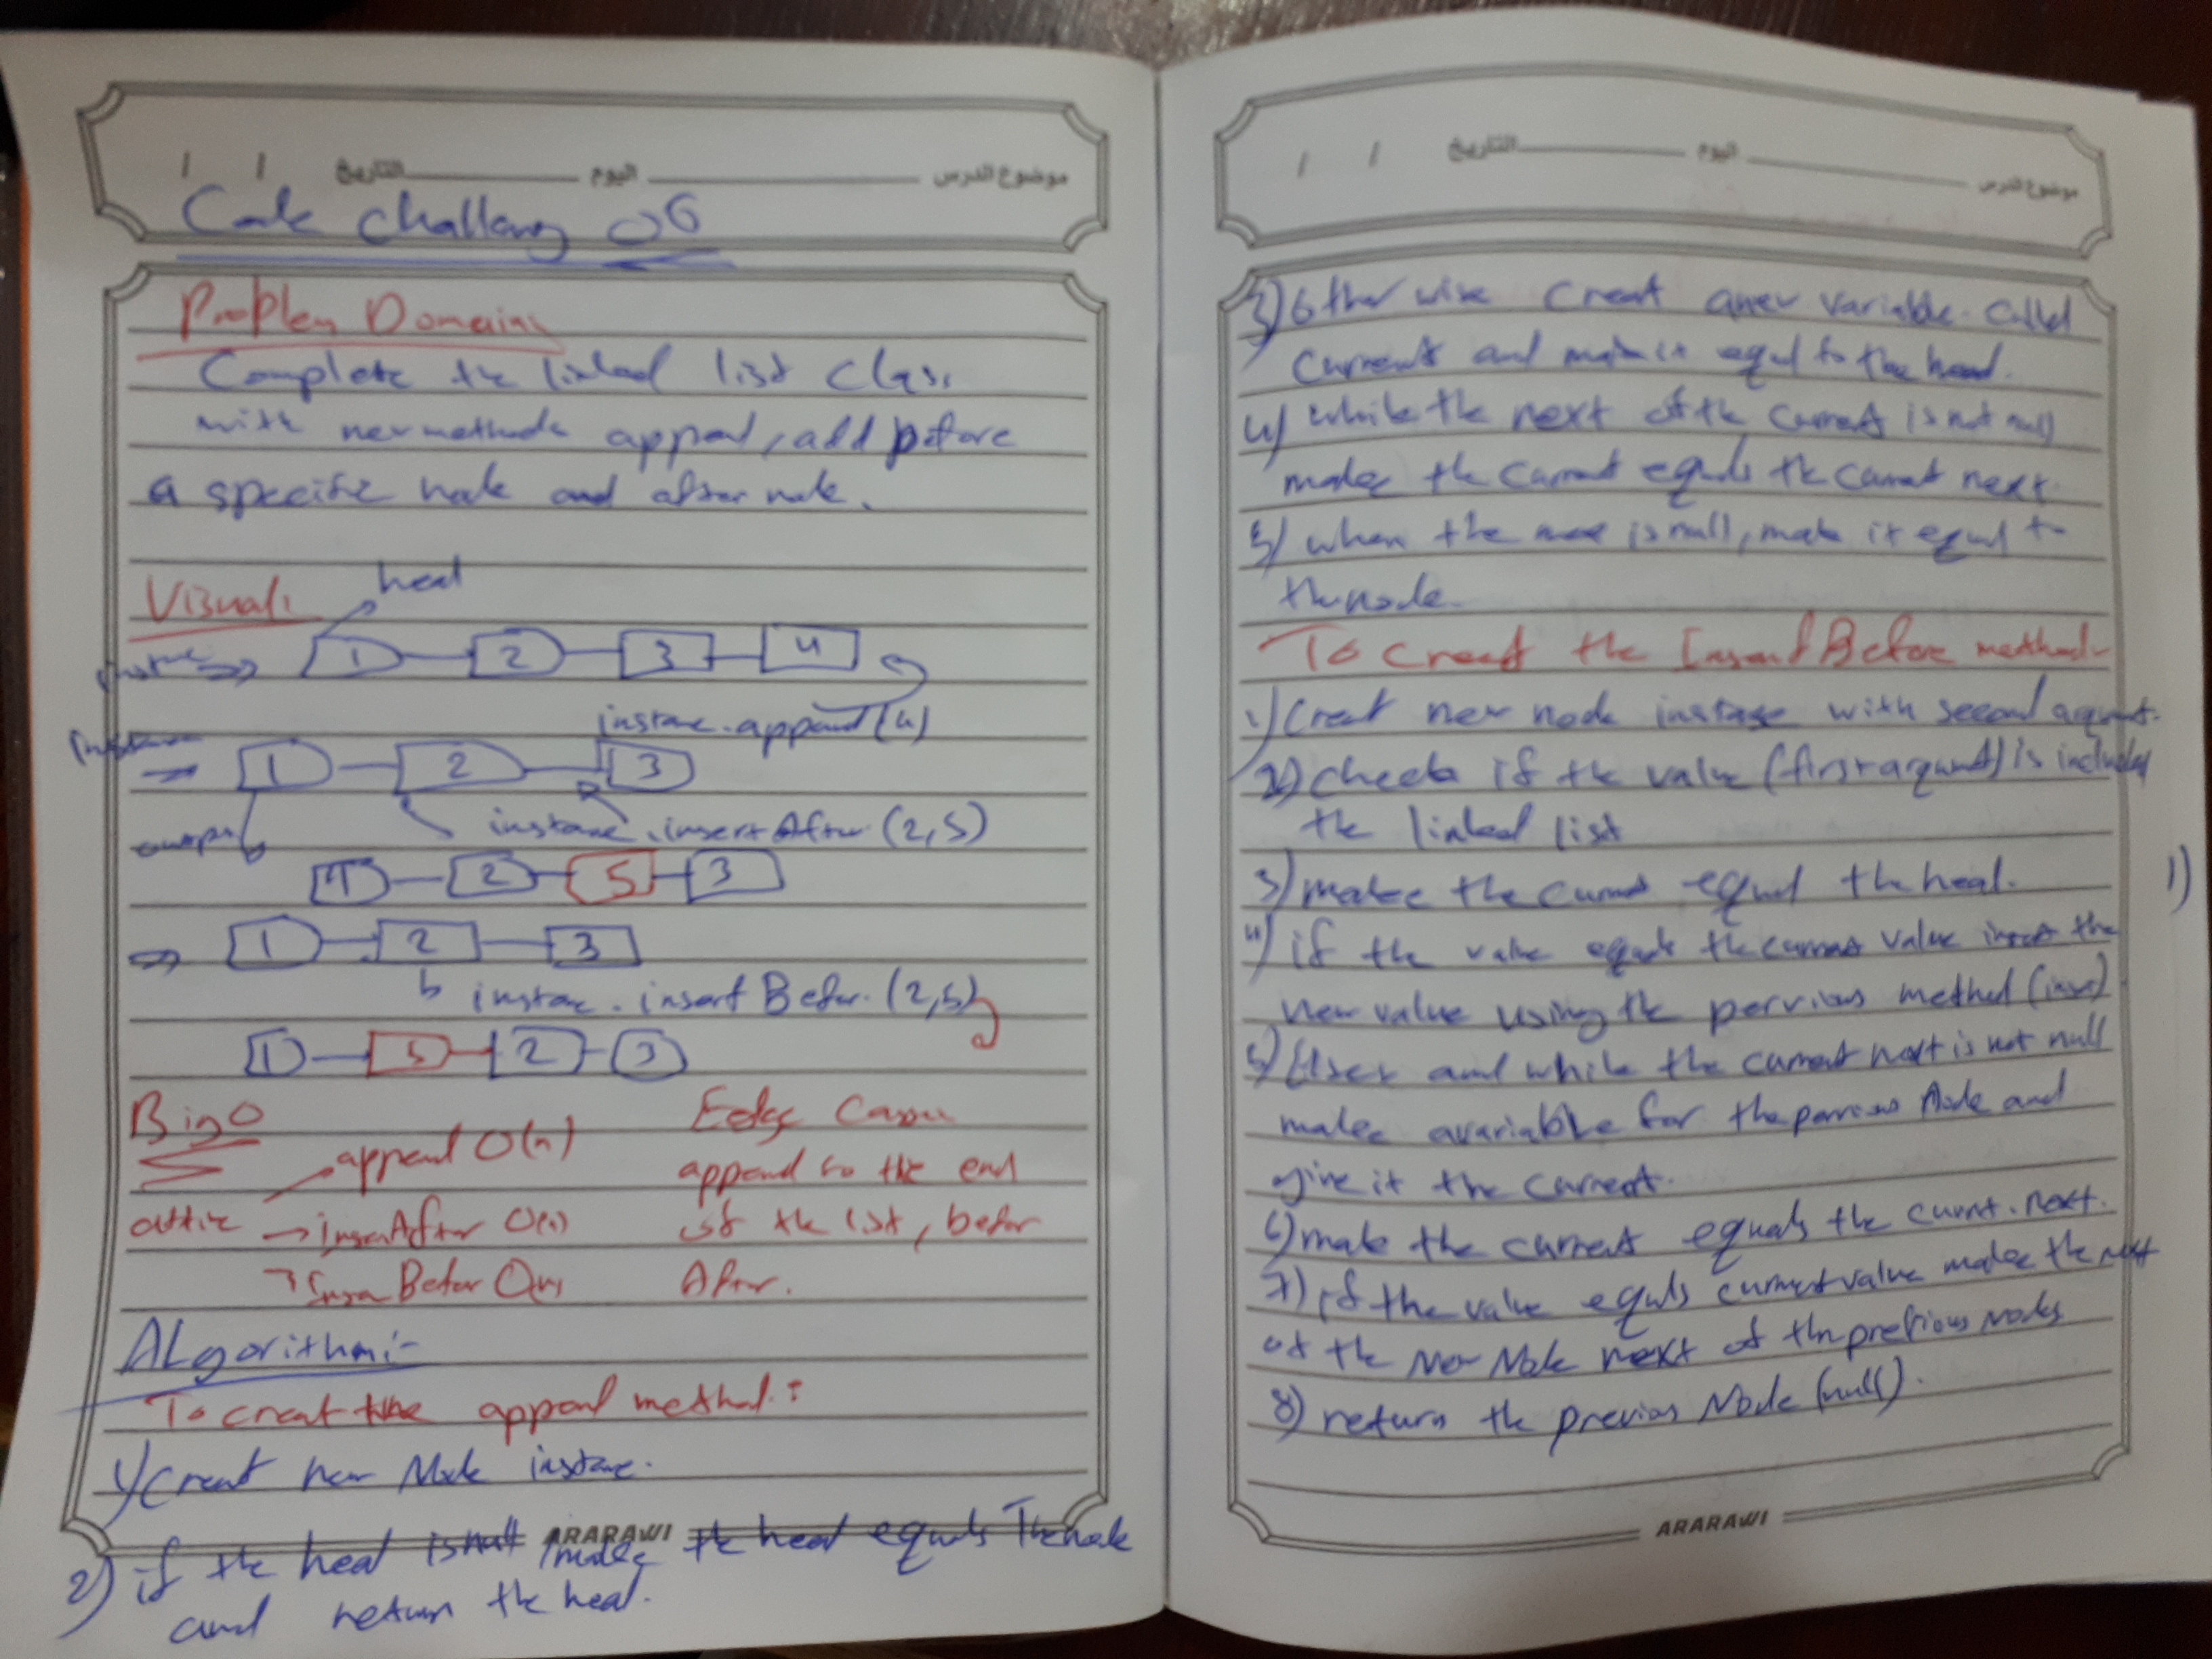 موضوع الدرس اليوم التاريخ / /
Code Challeng 06
Problem Domain:
Complete the linked list class
with new methods append, add before
a specific node and after node.
Visual:
head
1 2 3 4
instance.append(4)
1 2 3
output
instance.insertAfter(2,5)
1 2 5 3
1 2 3
instance.insertBefor(2,5)
1 5 2 3
Big O
append O(n)
insertAfter O(n)
Befor O(n)
Edge Cases
append to the end
of the list, befor
After.
ALgorithm:-
To creat the append method:
1) Creat new Node instance.
2) if the head is null make the head equals The node
and return the head.
ARARAWI
موضوع الدرس اليوم التاريخ / /
3) Other wise creat a new variable called
current and make it equal to the head.
4) while the next of the current is not null
make the current equals the current next.
5) when the next is null, make it equal to
the node.
To creat the Insert Before method-
1) Creat new node instance with second
2) check if the value (first) is included
the linked list
3) make the current equal the head.
4) if the value equals the current value insert the
new value using the pervious method (insert)
5) and while the current next is not null
make a variable for the Node and
give it the current.
6) make the current equals the current.next.
7) if the value equals current value make the next
of the New Node next of the previous Nodes
8) return the previous Node (null).
1)
ARARAWI